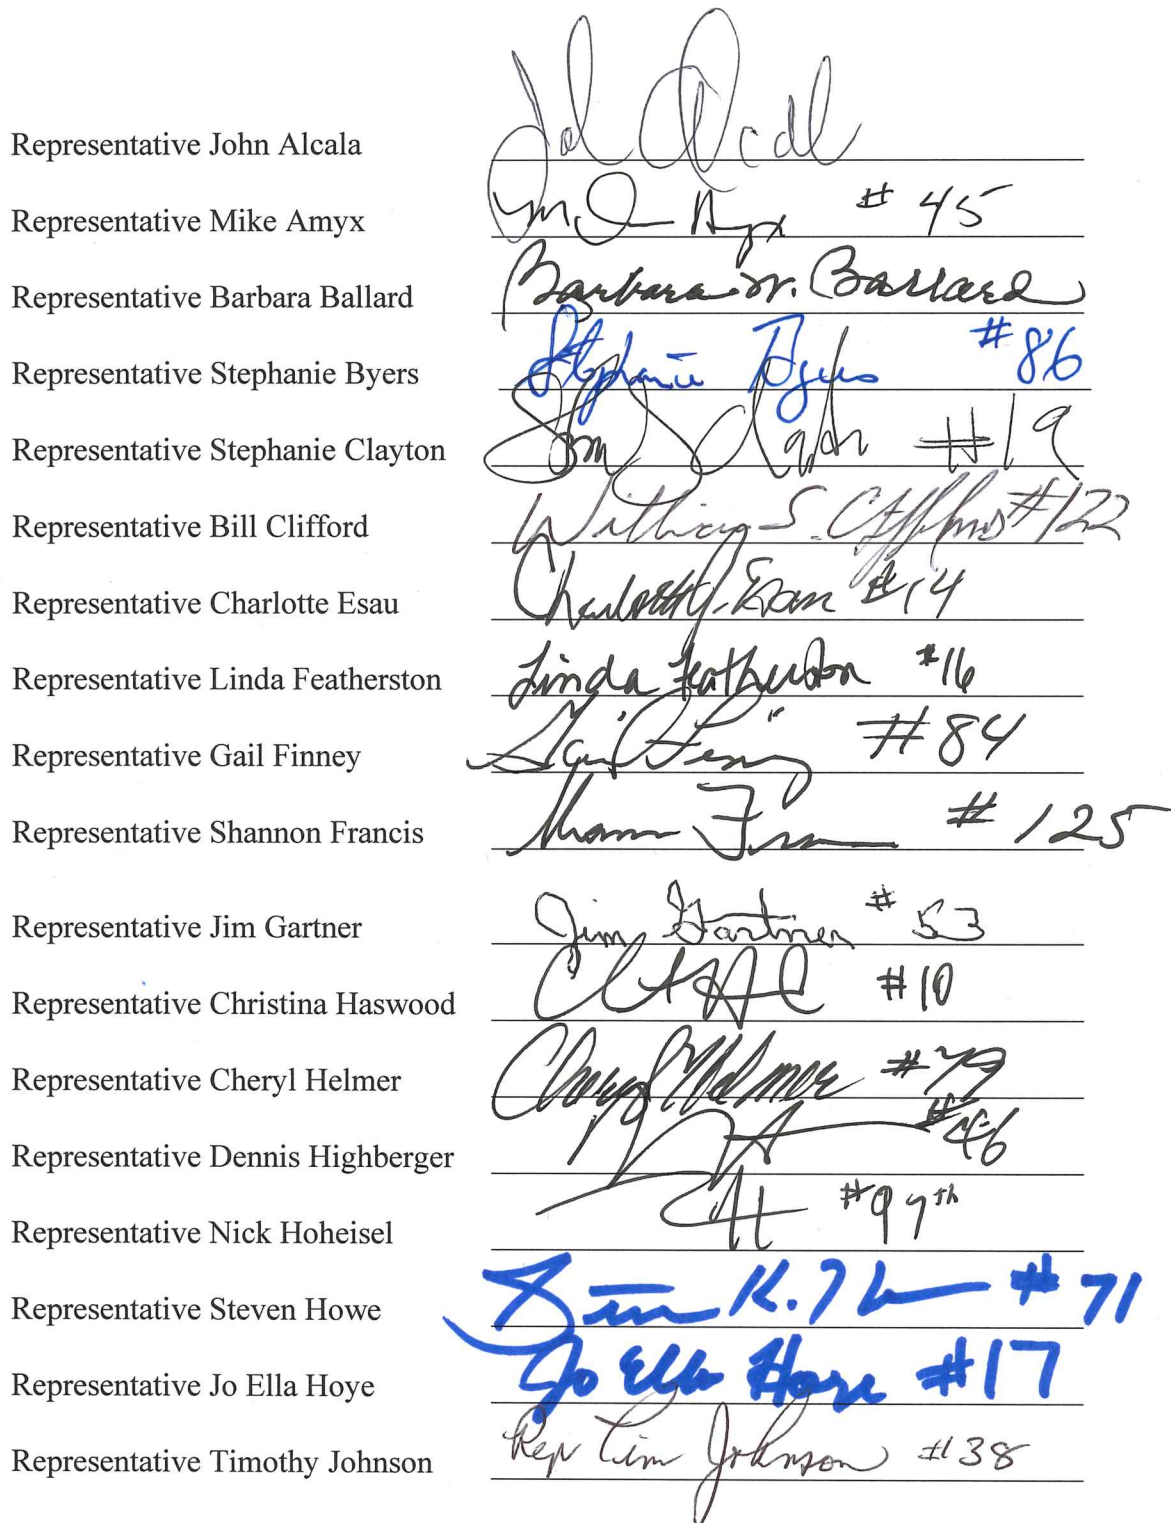 Representative John Alcala
Representative Mike Amyx # 45
Representative Barbara Ballard Barbara W. Ballard
Representative Stephanie Byers Stephanie Byers #86
Representative Stephanie Clayton #19
Representative Bill Clifford William S. Clifford #122
Representative Charlotte Esau Esau #14
Representative Linda Featherston Linda Featherston #16
Representative Gail Finney Gail Finney #84
Representative Shannon Francis # 125
Representative Jim Gartner Jim Gartner # 53
Representative Christina Haswood #10
Representative Cheryl Helmer Cheryl Helmer #79
Representative Dennis Highberger #46
Representative Nick Hoheisel #97th
Representative Steven Howe K. #71
Representative Jo Ella Hoye Jo Ella Hoye #17
Representative Timothy Johnson Rep Tim Johnson #38